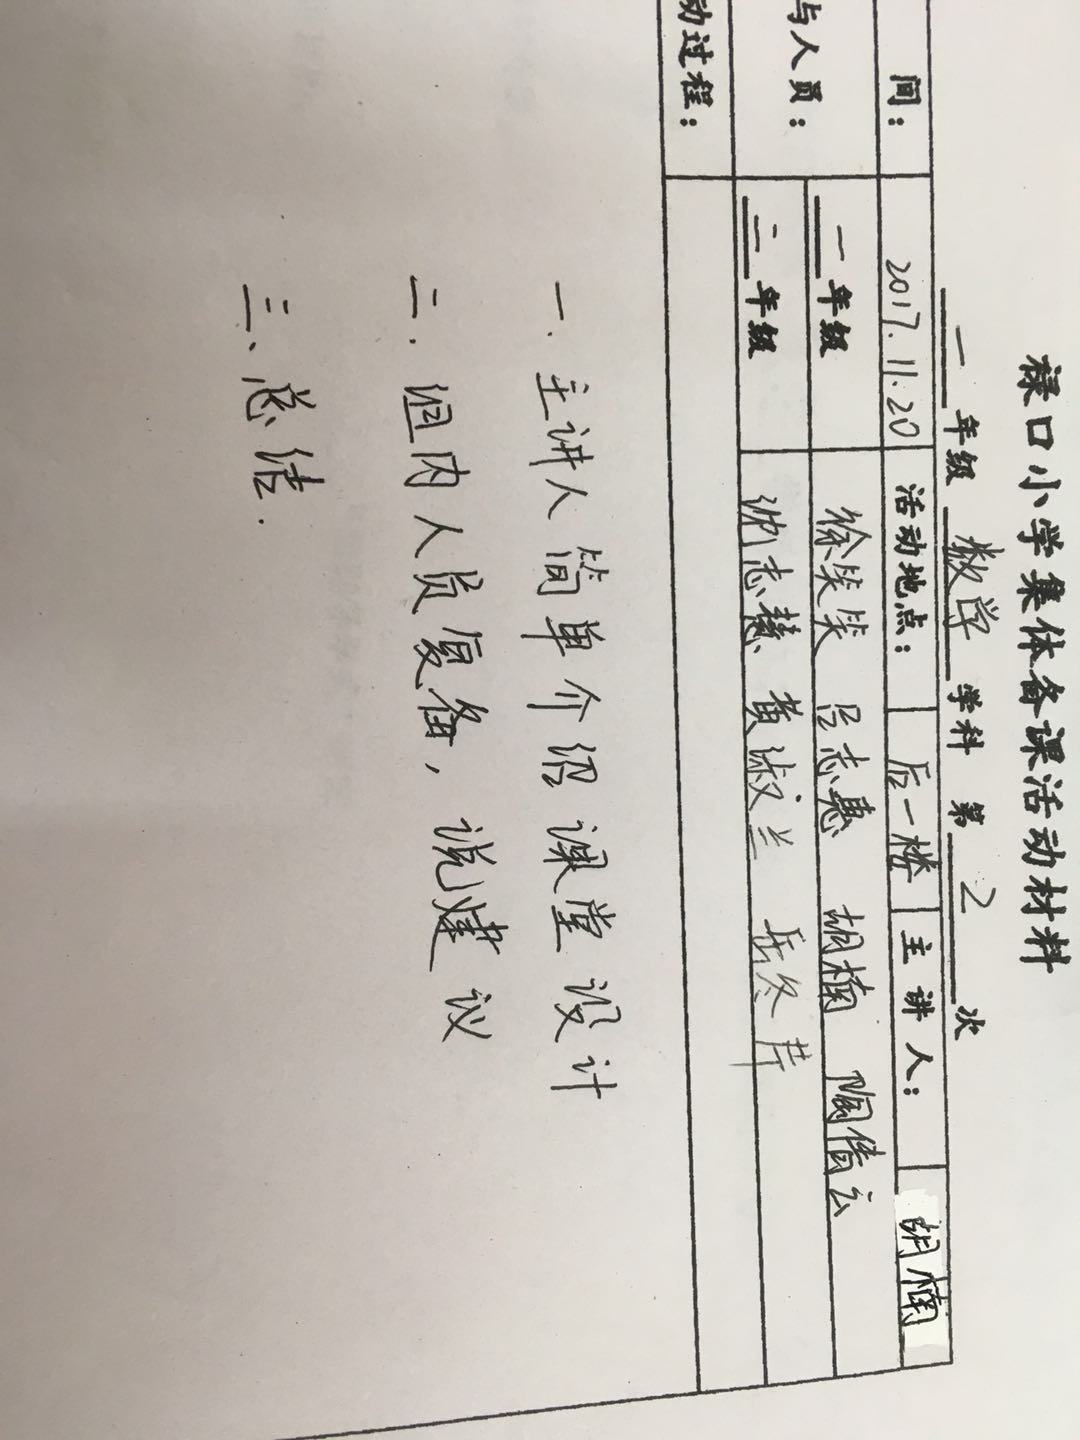 禄口小学集体备课活动材料
一 年级 数学 学科 第 2 次
间： 2017.11.20 活动地点： 后一楼 主讲人： 胡楠
与人员： 一 年级 徐笑笑 吕志惠 胡楠 陶倩云
二 年级 沈志慧 黄淑兰 岳冬芹
动过程：
一. 主讲人简单介绍课堂设计
二. 组内人员复备，说建议
三、总结.